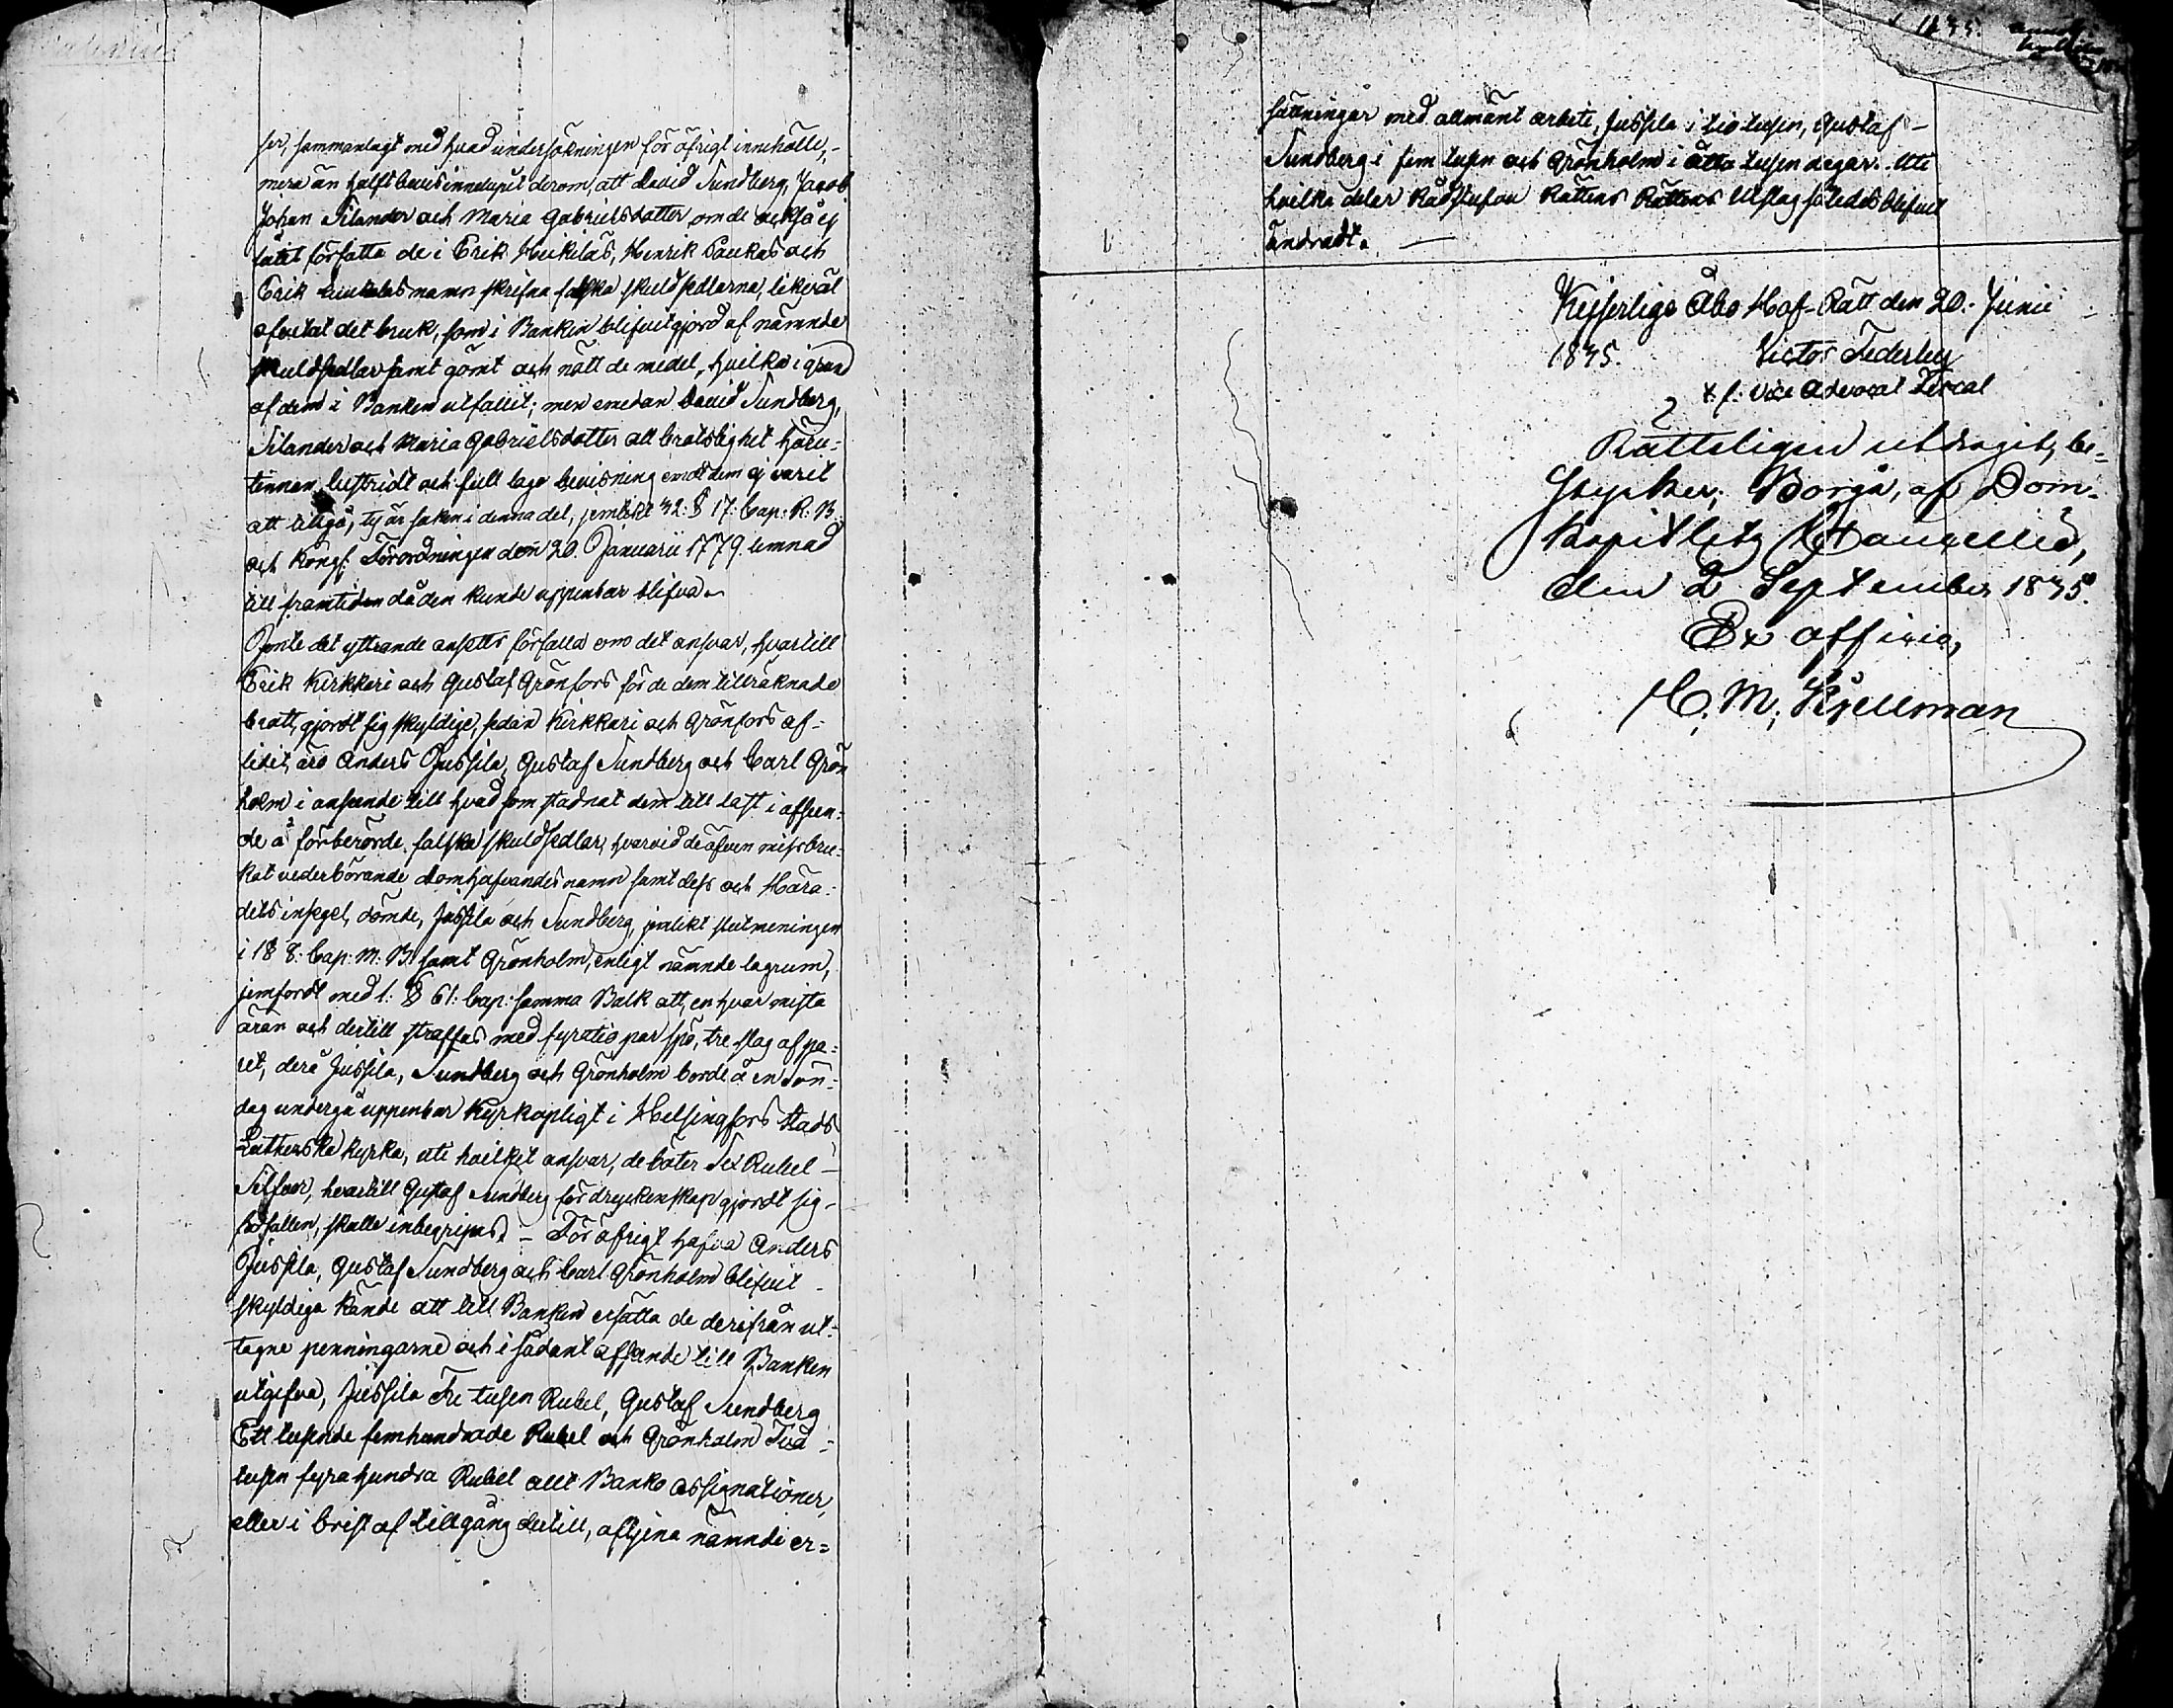 ser, sammanlagt med hvad undersökningen för öfrigt innehålle,
mera än halft bevis innelupit derom, att David Sundberg, Jacob
Johan Silander och Maria Gabrielsdotter om de ock så ej
låtit författa de i Erik Heikiläs, Henrik Paukas och
Erik namn skrifna falska skuldsedlarna, likväl
afvetat det bruk, som i Banken blifvit gjord af nämnde
skuldsedlar samt gömt och nött de medel, hvilka i grund
af dem i Banken utfallit; men emedan David Sundberg,
Silander och Maria Gabrielsdotter all brottslighet häru-
tinnan bestridt och full laga bevisning emot dem ej varit
att tillgå, ty är saken i denna del, jemlikt 32: § 17: Cap: R: B:
och Kongl: Förordningen den 20 Januarii 1779 lemnad
till framtiden då den kunde uppenbar blifva.
Jemte det yttrande ansetts förfalla om det ansvar, hvartill
Erik Kirkkari och Gustaf Grönfors för de dem tillräknade
brott, gjordt sig skyldige, sedan Kirkkari och Grönfors af-
lidit, äro Anders Jussila, Gustaf Sundberg och Carl Grön
holm i anseende till hvad som stadnat dem till last i afseen-
de å förberörde falska skuldsedlar, hvarvid de äfven missbru-
kat vederbörande domhafvandes namn samt dess och Hära-
dets insegel, dömde, Jussila och Sundberg, jemlikt slutmeningen
i 1 § 8: Cap: M: B: samt Grönholm, enligt nämnde lagrum,
jemfördt med 1: § 61: Cap: samma Balk att, en hvar mista
äran och dertill straffas med fyratio par spö, tre slag af pa-
ret, derå Jussila, Sundberg och Grönholm borde å en Sön-
dag undergå uppenbar Kyrkopligt i Helsingfors stads
Lutherska kyrka, uti hvilket ansvar, de böter Sex Rubel
Silfver, hvartill Gustaf Sundberg för dryckenskap gjordt sig
sakfällen, skulle inbegripas. – För öfrigt hafva Anders
Jussila, Gustaf Sundberg och Carl Grönholm blifvit
skyldiga kände att till Banken ersätta de derifrån ut-
tagne penningarne och i sådant afseende till Banken
utgifva, Jussila Tre tusen Rubel, Gustaf Sundberg
Ett tusende femhundrade Rubel och Grönholm Två
tusen fyra hundra Rubel allt Banko Assignationer,
eller i brist af tillgång dertill, aftjena nämnde er=
1845.
sättningar med allmänt arbete, Jussila i tio tusen, Gustaf
Sundberg i fem tusen och Grönholm i åtta tusen dagar. Uti
hvilka delar Rådstufvu Rättens Rättens Utslag således blifvit
ändradt. —
Kejserliga Åbo Hof-Rätt den 20. Junii
1845. Victor Federley
t. f. vice Advocat Fiscal
Rätteligen utdragit, be-
styrker; Borgå, af Dom-
kapitlets Cancellie,
den 2 September 1845.
Ex officio,
C. M. Kjellman